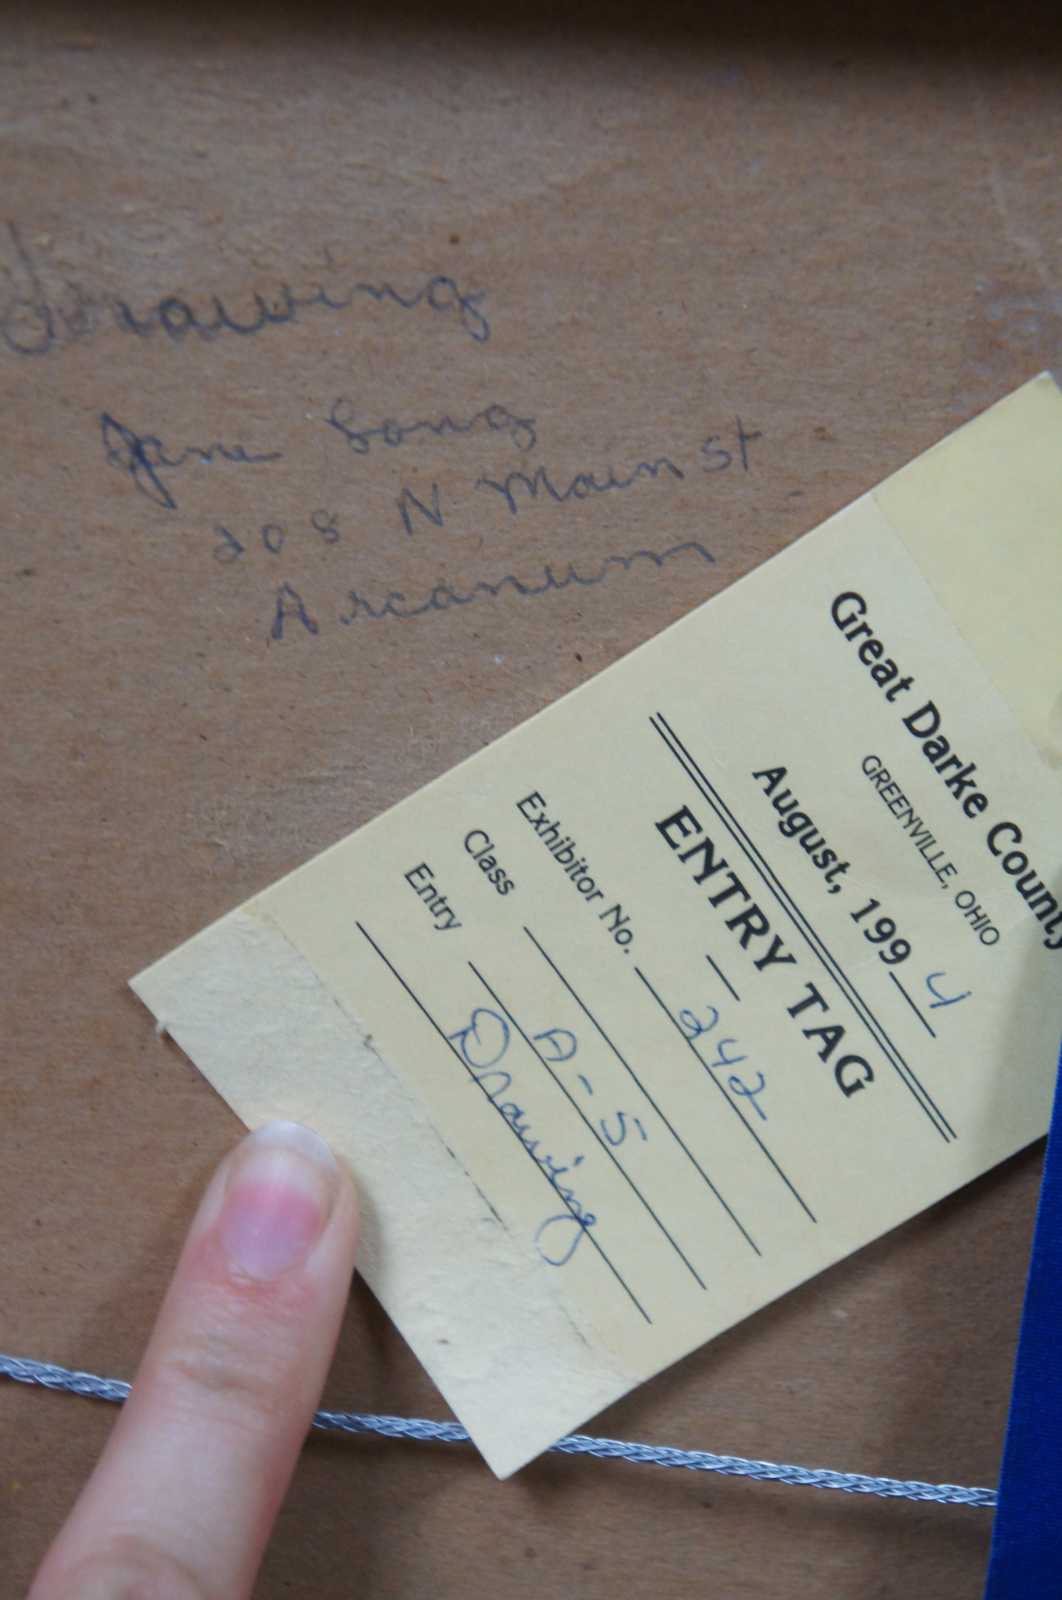 Drawing
Jane Song
208 N Main St
Arcanum
Great Darke County
GREENVILLE, OHIO
August, 1994
ENTRY TAG
Exhibitor No. 242
Class A-5
Entry Drawing